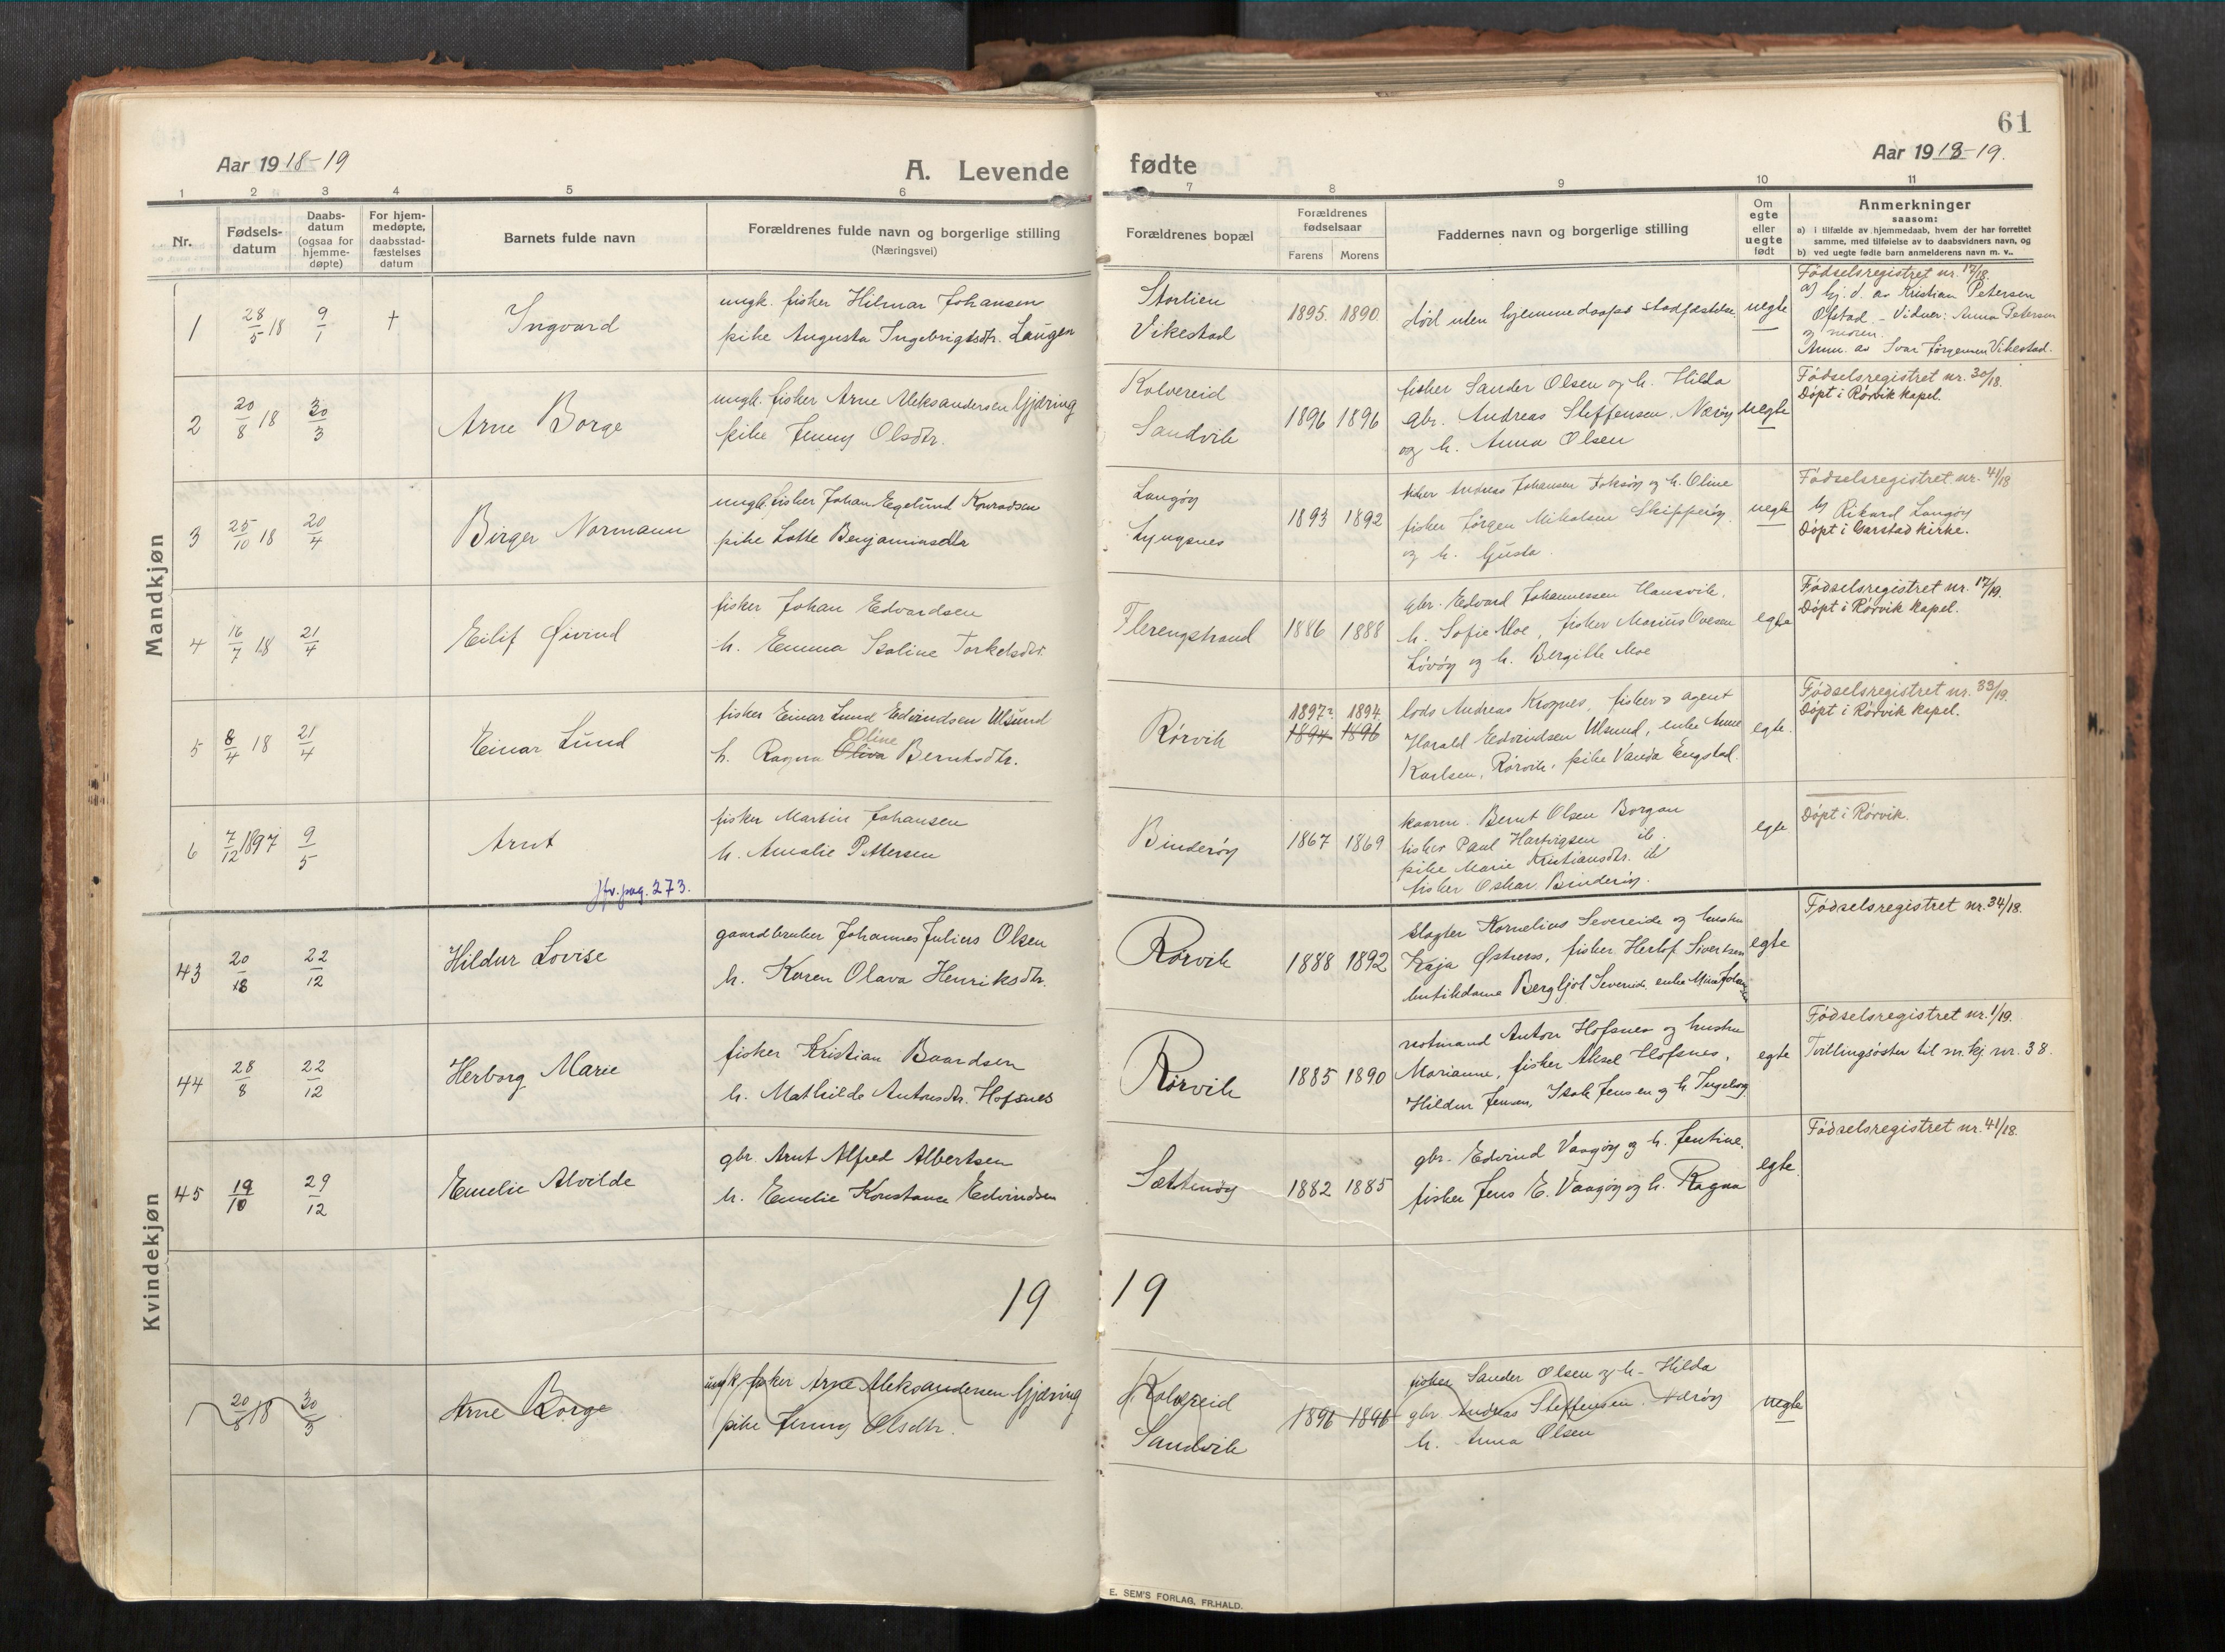 61
Aar 1918-19
A. Levende
fødte
Aar 1918-19.
1 2 3 4 5 6 7 8 9 10 11
Nr.
Fødsels-
datum
Daabs-
datum
(ogsaa for
hjemme-
døpte)
For hjem-
medøpte,
daabsstad-
fæstelses
datum
Barnets fulde navn
Forældrenes fulde navn og borgerlige stilling
(Næringsvei)
Forældrenes bopæl
Forældrenes
fødselsaar
Farens Morens
Faddernes navn og borgerlige stilling
Om
egte
eller
uegte
født
Anmerkninger
saasom:
a) i tilfælde av hjemmedaab, hvem der har forrettet
samme, med tilføielse av to daabsvidners navn, og
b) ved uegte fødte barn anmelderens navn m. v..
Mandkjøn
1
28/5 18
9/1
†
Ingvard
ungk. fisker Hilmar Johansen
pike Augusta Ingebrigtsdtr. Laugen
Storlien
Vikestad
1895. 1890.
død uten hjemmedaaps stadfæstelse
uegte
Fødselsregistret nr. 17/18.
a) hj. d. av Kristian Petersen
Ofstad - Vidner: Anna Petersen
og moren.
Anm. av Ivar Jørgensen Vikestad.
2
20/8 18
30/3
Arne Borge
ungk. fisker Arne Aleksandersen Gjæring
pike Jenny Olsdtr.
Kolvereid
Sandvik
1896 1896
fisker Sander Olsen og h. Hilda
gbr. Andreas Steffensen. Nærøy
og h. Anna Olsen
uegte
Fødselsregistret nr. 30/18.
Døpt i Rørvik kapel.
3
25/10 18
20/4
Birger Normann
ungk. fisker Johan Egelund Konradsen
pike Lotte Benjaminsdtr
Langøy
Lyngsnes
1893 1892
fisker Andreas Johansen og h. Oline
fisker Jørgen Mikalsen Skipperøy
og h. Gusta.
uegte
Fødselsregistret nr. 41/18
b) Rikard Langøy
Døpt i Garstad kirke.
4
16/7 18
21/4
Eilif Øivind
fisker Johan Edvardsen
h. Emma Isaline Torkelsdtr.
Flerengstrand
1886 1888
gbr. Edvard Johannessen Hansvik.
h. Sofie Moe, fisker Marius Ovesen
Løvøy og h. Bergitte Moe
egte
Fødselsregistret nr. 17/19.
Døpt i Rørvik kapel.
5
8/4 18
21/4
Einar Lund
fisker Einar Lund Edvindsen Ulsund
Oline
h. Ragna Oliva Berntsdtr.
Rørvik
1897? 1894.
1894 1896
lods Andreas Krognes, fisker & agent
Harald Edvindsen Ulsund, enke Anne
Karlsen, Rørvik. pike Vanda Engstad.
egte.
Fødselsregistret nr. 33/19.
Døpt i Rørvik kapel.
6
7/12 1897
9/5
Arnt
jfr. pag. 273.
fisker Martin Johansen
h. Amalie Pettersen
Binderøy
1867 1869
Bernt Olsen Borgan
fisker Paul Hartvigsen ib.
pike Marie Kristiansdtr. ib
fisker Oskar Binderøy.
egte
Døpt i Rørvik.
Kvindekjøn
43
20/8
22/12
Hildur Lovise
gaardbruker Johannes Julius Olsen
h. Karen Olava Henriksdtr.
Rørvik
1888 1892
slagter Kornelius Severeide og hustru
Kaja Østnes, fisker Herlof Sivertsen
butikdame BergljotÆvereide. enke Mina Johansen
egte
Fødselsregistret nr. 34/18.
44
28/8
22/12
Herborg Marie
fisker Kristian Baardsen
h. Mathilde Antonsdtr. Hofsnes
Rørvik
1885 1890
notmand Anton Hofsnes og hustru
Marianne, fisker Aksel Hofsnes,
Hildur Jensen, Isak Jensen og h. Ingeborg
egte
Fødselsregistret nr. 1/19.
Tvillingsøster til m.kj. nr. 38.
45
19/10
29/12
Emelie Alvilde
gbr Arnt Alfred Albertsen
h. Emelie Konstance Edvindsen
Sættenøy
1882 1885
gbr. Edvind Vaagøy og h. Jentine.
fisker Jens E. Vaagøy og h. Ragna
egte.
Fødselsregistret nr. 41/18.
19 19
1
20/8 18
30/3
Arne Borge
ungk. fisker Arne Aleksandersen Gjæring
pike Jenny Olsdtr.
Kolvereid
Sandvik
1896 1896
fisker Sander Olsen og h. Hilda
gbr. Andreas Steffensen. Nærøy
h. Anna Olsen
uegte
E. SEM'S FORLAG, FR.HALD.